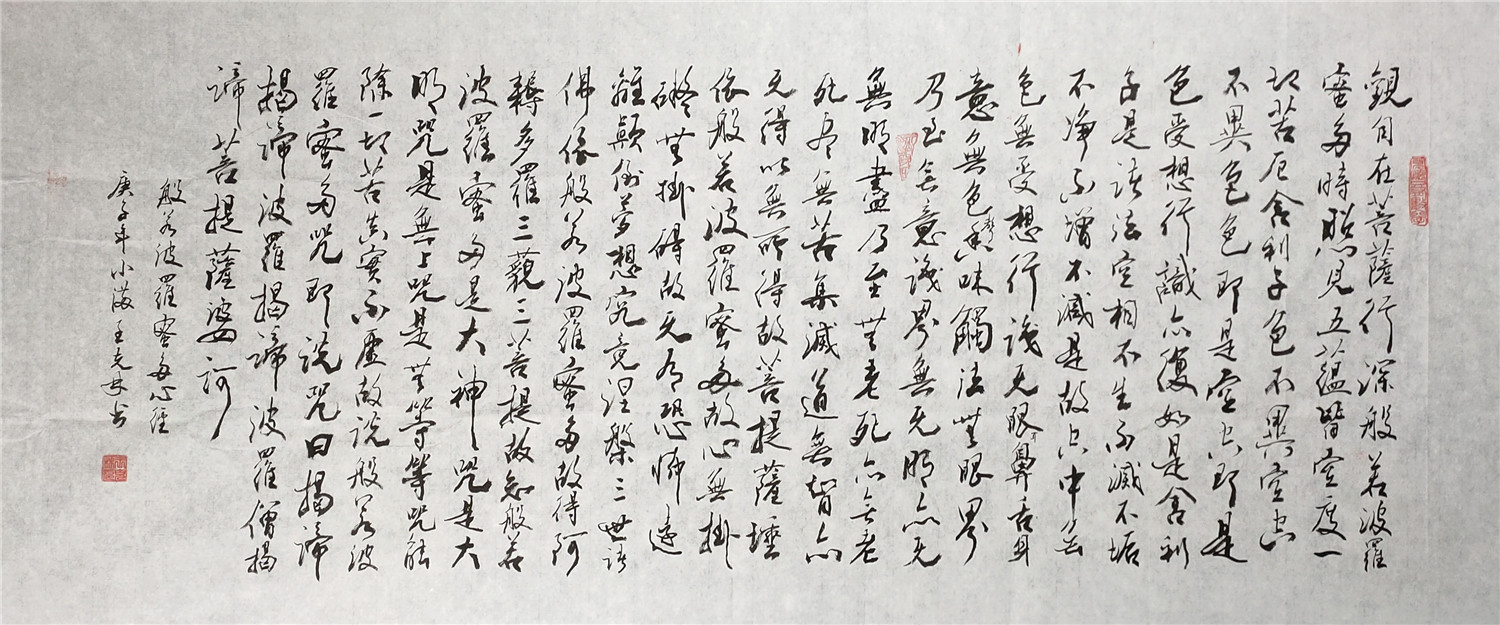 觀自在菩薩行深般若波羅
蜜多時照見五蘊皆空度一
切苦厄舍利子色不異空空
不異色色即是空空即是
色受想行識亦復如是舍利
子是諸法空相不生不滅不垢
不淨不增不減是故空中無
色無受想行識无眼耳鼻舌身
意無色聲香味觸法無眼界
乃至無意識界無无明亦无
無明盡乃至無老死亦無老
死盡無苦集滅道無智亦
无得以無所得故菩提薩埵
依般若波羅蜜多故心無掛
礙無掛碍故无有恐怖遠
離顛倒夢想究竟涅槃三世諸
佛依般若波羅蜜多故得阿
耨多羅三藐三菩提故知般若
波羅蜜多是大神咒是大
明咒是無上咒是無等等咒能
除一切苦真實不虛故說般若波
羅蜜多咒即説咒曰揭諦
揭諦波羅揭諦波羅僧揭
諦菩提薩婆訶
般若波羅蜜多心經
庚子年小滿王克書